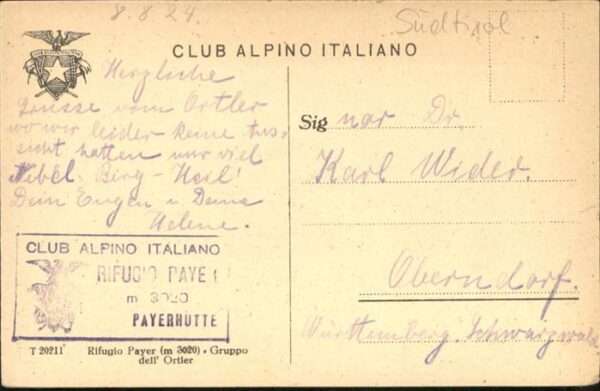 8.8.24.
Südtirol
CLUB ALPINO ITALIANO
Herzliche
Grüsse vom Ortler
wo wir leider keine Aus-
sicht hatten nur viel
Nebel. Berg-Heil!
Dein Eugen u Deine
Helene.
Signor Dr.
Karl Wider.
Oberndorf.
Württemberg. Schwarzwald
CLUB ALPINO ITALIANO
RIFUGIO PAYER
m 3020
PAYERHÜTTE
T 20211 Rifugio Payer (m 3020) - Gruppo
dell' Ortler